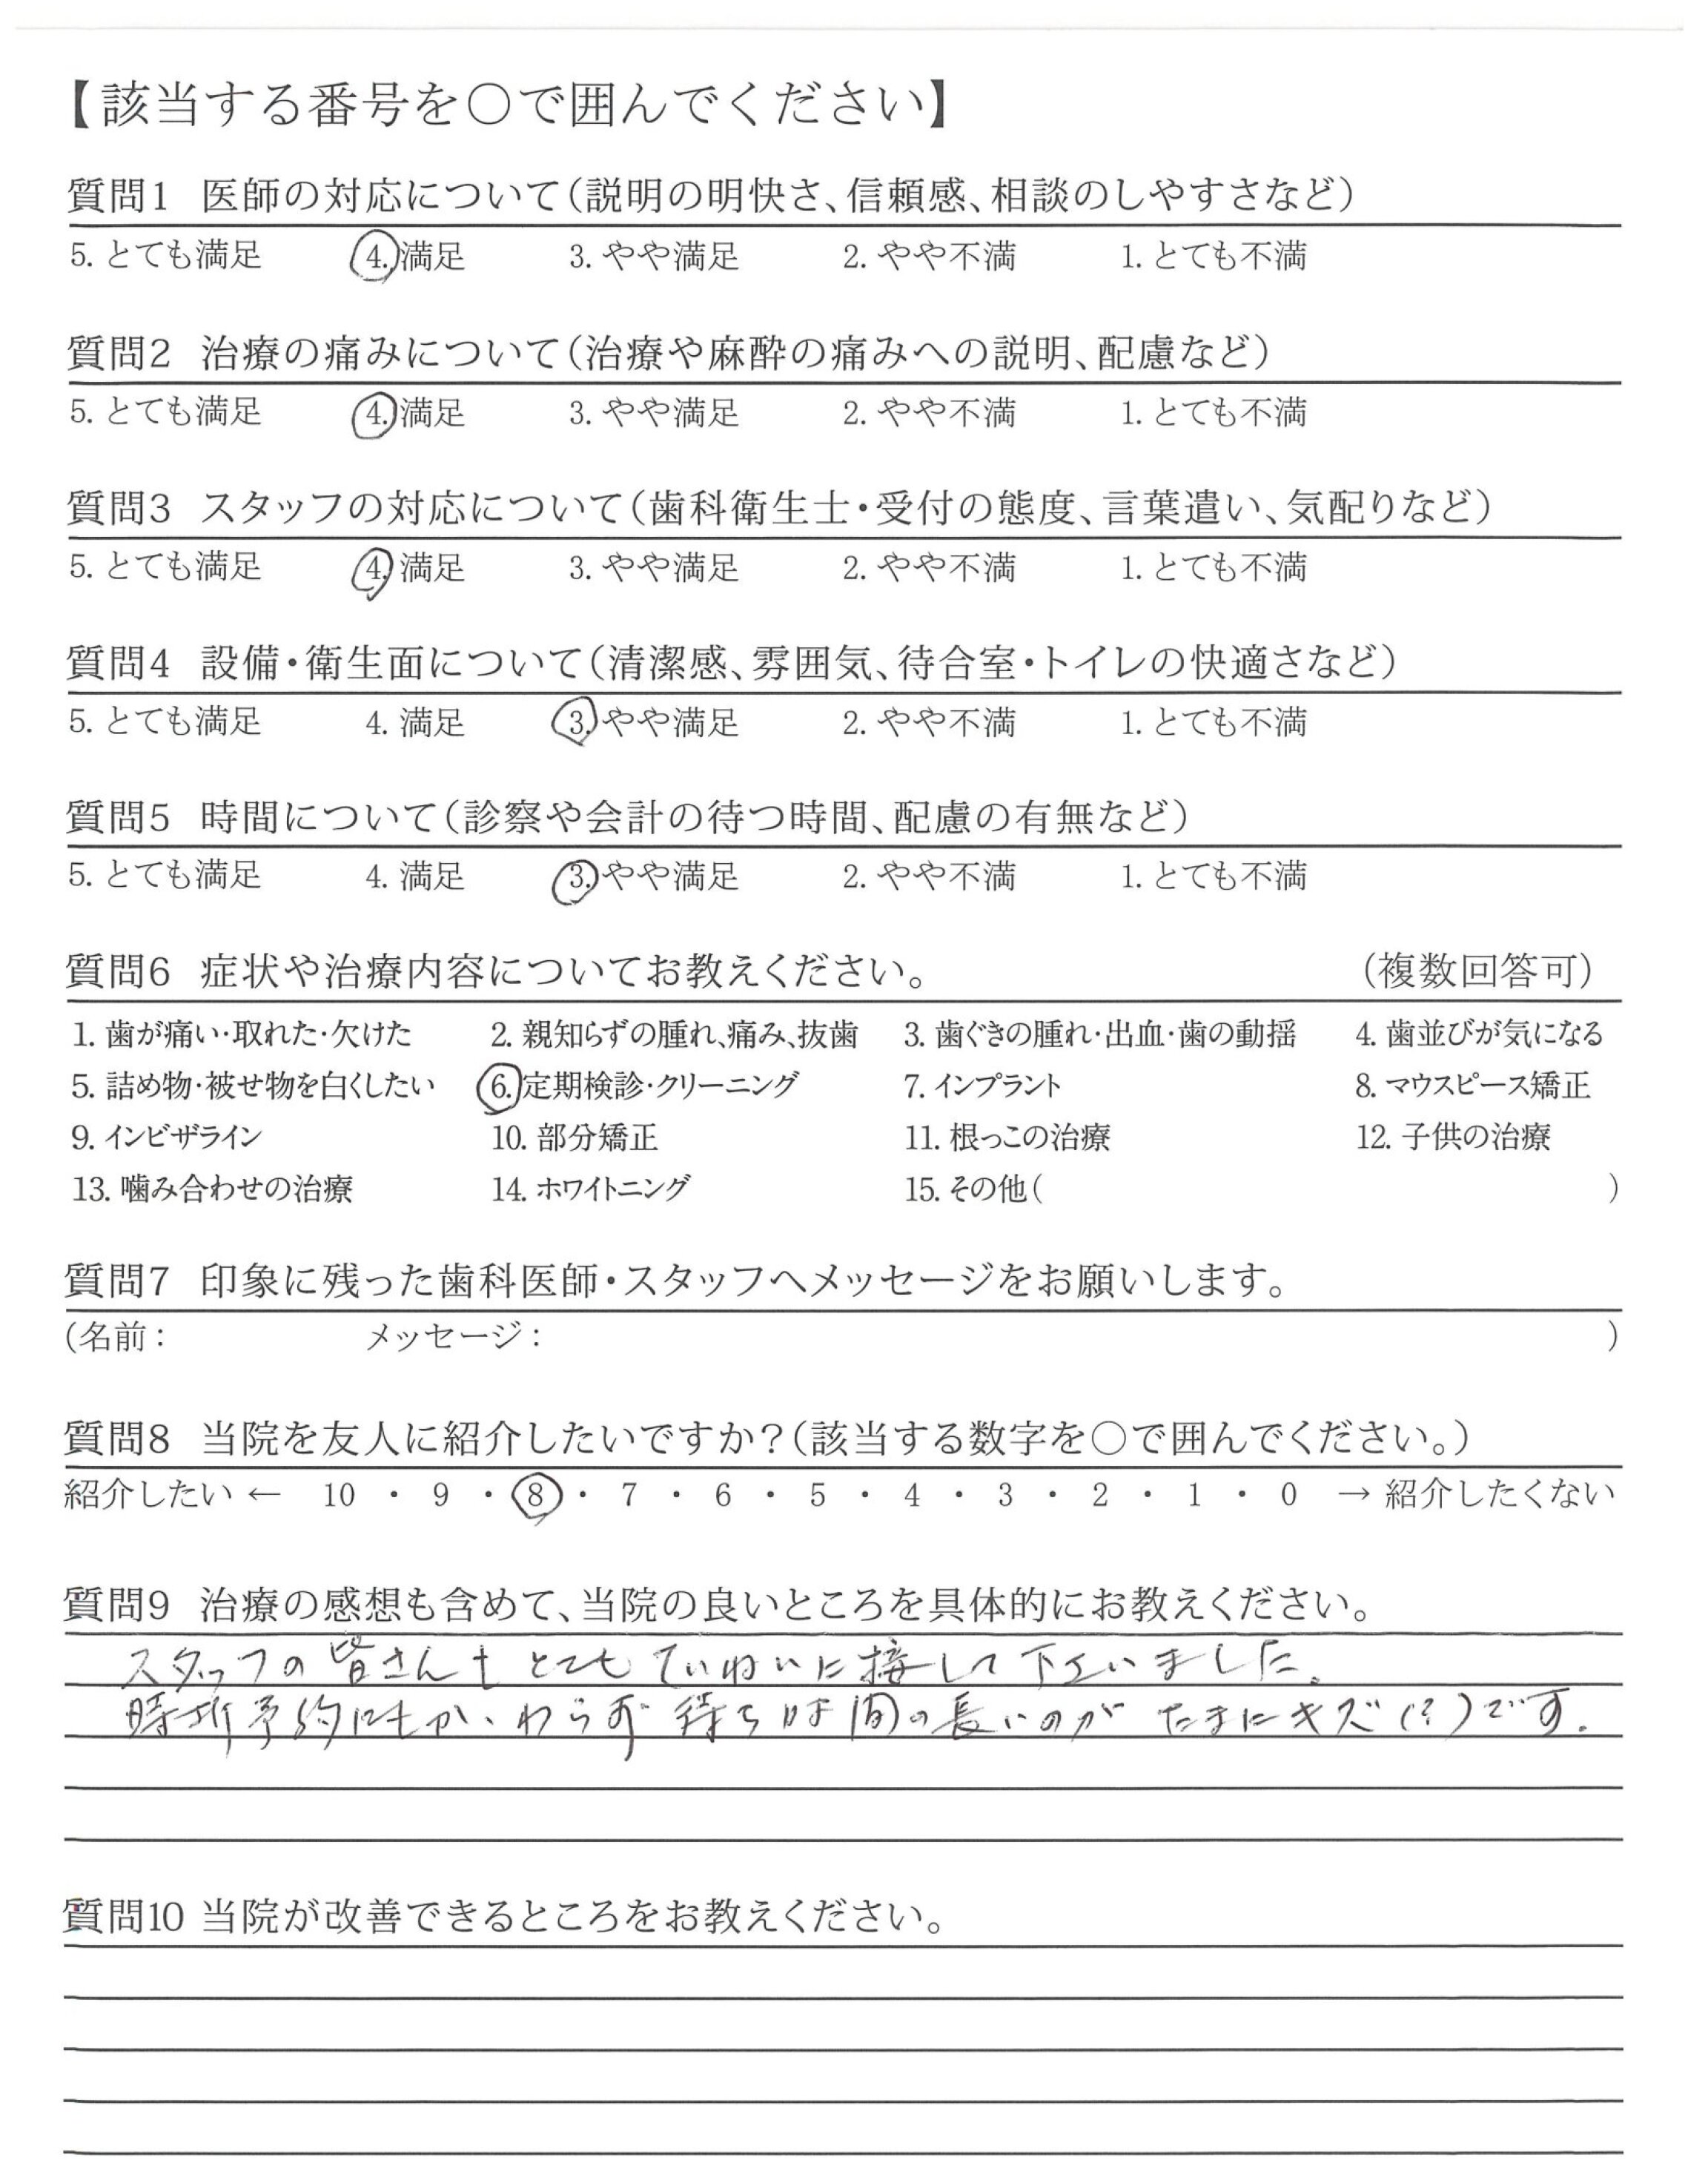 【該当する番号を○で囲んでください】
質問1 医師の対応について(説明の明快さ、信頼感、相談のしやすさなど)
5. とても満足 4. 満足 3. やや満足 2. やや不満 1. とても不満
質問2 治療の痛みについて(治療や麻酔の痛みへの説明、配慮など)
5. とても満足 4. 満足 3. やや満足 2. やや不満 1. とても不満
質問3 スタッフの対応について(歯科衛生士・受付の態度、言葉遣い、気配りなど)
5. とても満足 4. 満足 3. やや満足 2. やや不満 1. とても不満
質問4 設備・衛生面について(清潔感、雰囲気、待合室・トイレの快適さなど)
5. とても満足 4. 満足 3. やや満足 2. やや不満 1. とても不満
質問5 時間について(診察や会計の待つ時間、配慮の有無など)
5. とても満足 4. 満足 3. やや満足 2. やや不満 1. とても不満
質問6 症状や治療内容についてお教えください。 (複数回答可)
1. 歯が痛い・取れた・欠けた 2. 親知らずの腫れ、痛み、抜歯 3. 歯ぐきの腫れ・出血・歯の動揺 4. 歯並びが気になる
5. 詰め物・被せ物を白くしたい 6. 定期検診・クリーニング 7. インプラント 8. マウスピース矯正
9. インビザライン 10. 部分矯正 11. 根っこの治療 12. 子供の治療
13. 噛み合わせの治療 14. ホワイトニング 15. その他( )
質問7 印象に残った歯科医師・スタッフへメッセージをお願いします。
(名前: メッセージ: )
質問8 当院を友人に紹介したいですか?(該当する数字を○で囲んでください。)
紹介したい ← 10 ・ 9 ・ 8 ・ 7 ・ 6 ・ 5 ・ 4 ・ 3 ・ 2 ・ 1 ・ 0 → 紹介したくない
質問9 治療の感想も含めて、当院の良いところを具体的にお教えください。
スタッフの皆さんも とても ていねいに接して下さいました。
時折予約にもかゝわらず 待ち時間の長いのが たまにキズ(?)です。
質問10 当院が改善できるところをお教えください。